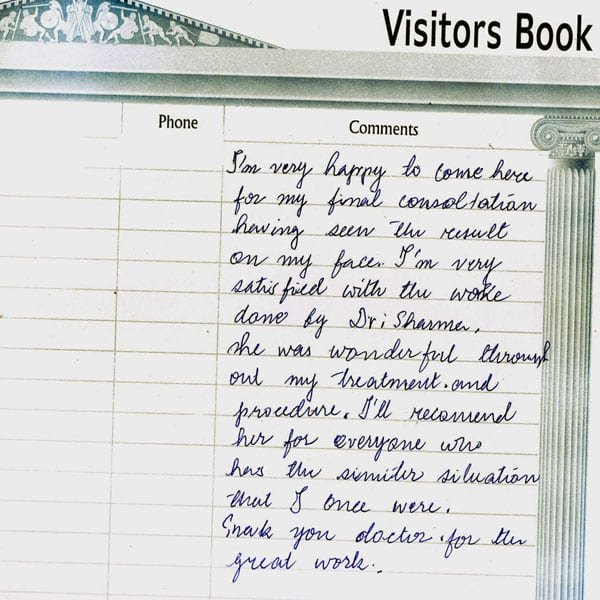 Visitors Book
Phone
Comments
I'm very happy to come here
for my final consoltation
having seen the result
on my face. I'm very
satisfied with the worke
done by Dr; Sharma,
she was wonderful through
out my treatment. and
procedure. I'll recomend
her for everyone who
has the similer situation
that I once were.
you doctor. for the
great work.